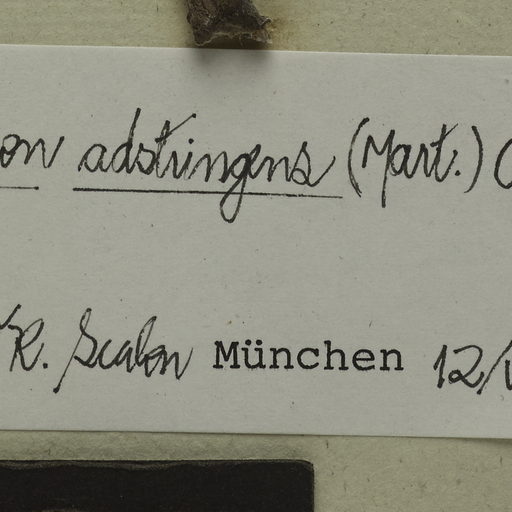 on adstringens (Mart.) C
R. Scalon München 12/